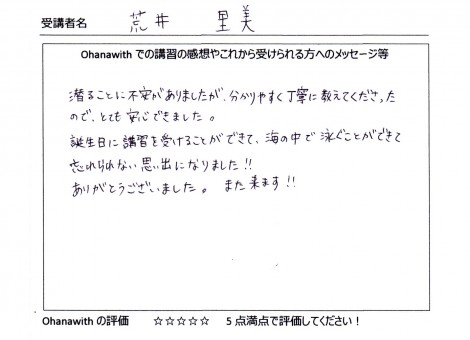 受講者名 荒井 里美
Ohanawith での講習の感想やこれから受けられる方へのメッセージ等
潜ることに不安がありましたが、分かりやすく丁寧に教えてくださった
ので、とても安心できました。
誕生日に講習を受けることができて、海の中で泳ぐことができて
忘れられない思い出になりました!!
ありがとうございました。 また来ます!!
Ohanawith の評価 ☆☆☆☆☆ 5 点満点で評価してください!